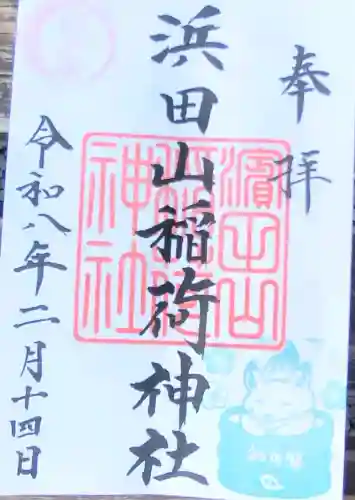 奉拝
浜田山稲荷神社
濱田山
稲荷
神社
令和八年二月十四日